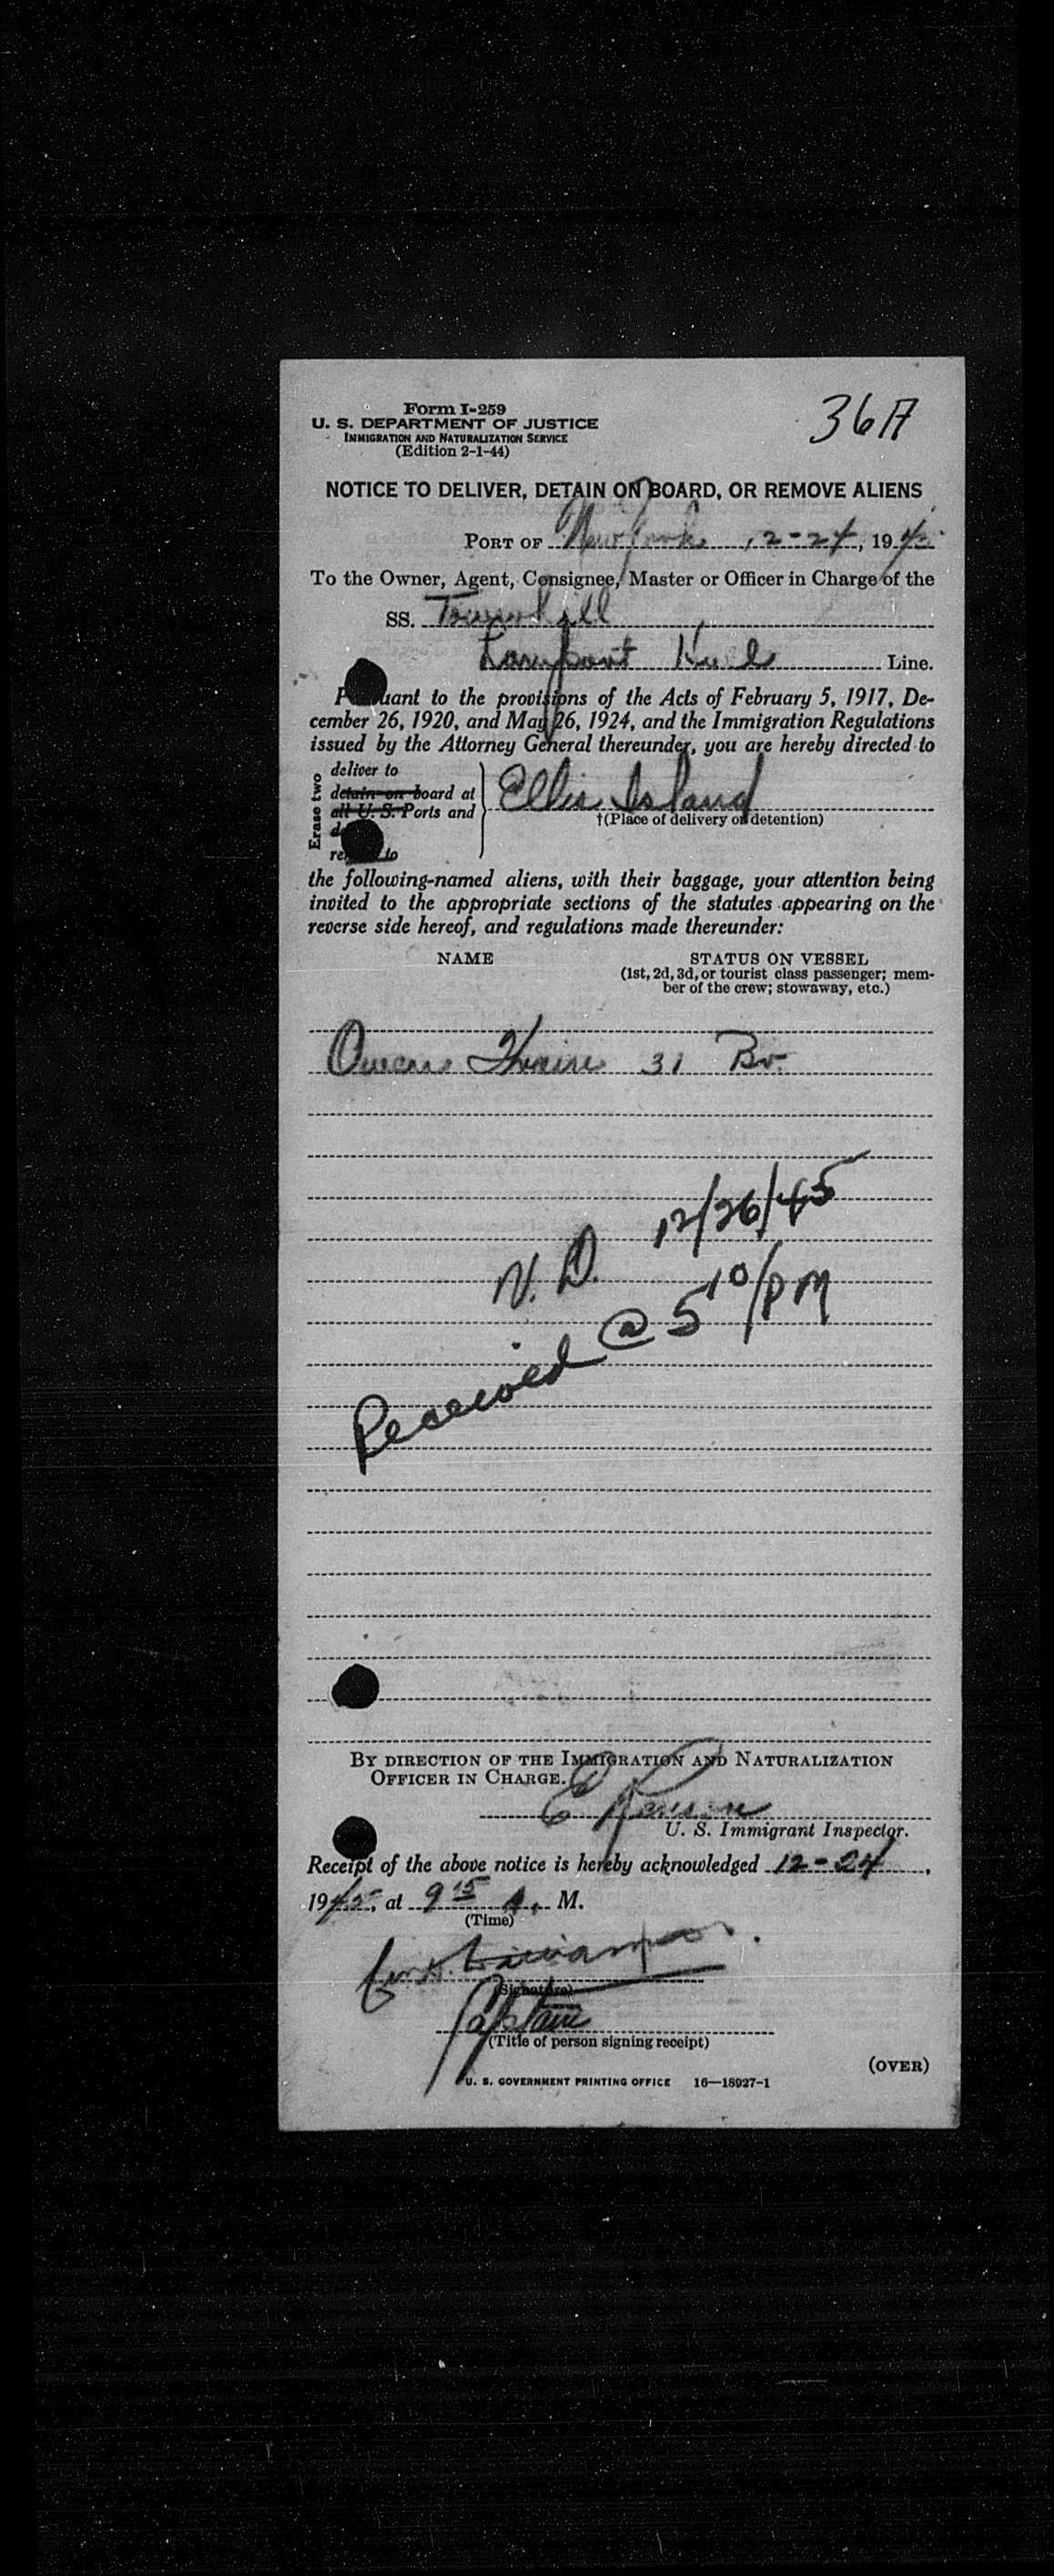 Form I-259
U. S. DEPARTMENT OF JUSTICE
IMMIGRATION AND NATURALIZATION SERVICE
(Edition 2-1-44)
36A
NOTICE TO DELIVER, DETAIN ON BOARD, OR REMOVE ALIENS
PORT OF New York 12-24, 1945
To the Owner, Agent, Consignee, Master or Officer in Charge of the
SS.
Lamport Line.
Pursuant to the provisions of the Acts of February 5, 1917, De-
cember 26, 1920, and May 26, 1924, and the Immigration Regulations
issued by the Attorney General thereunder, you are hereby directed to
Erase two
deliver to
detain on board at
all U. S. Ports and
to
Ellis Island
†(Place of delivery or detention)
the following-named aliens, with their baggage, your attention being
invited to the appropriate sections of the statutes appearing on the
reverse side hereof, and regulations made thereunder:
NAME
STATUS ON VESSEL
(1st, 2d, 3d, or tourist class passenger; mem-
ber of the crew; stowaway, etc.)
Owens 31 Br.
N. D. 12/26/45
Received @ 5 10/PM
BY DIRECTION OF THE IMMIGRATION AND NATURALIZATION
OFFICER IN CHARGE.
E
U. S. Immigrant Inspector.
Receipt of the above notice is hereby acknowledged 12-24,
1945, at 9 15 A. M.
(Time)
(Signature)
Captain
(Title of person signing receipt)
(OVER)
U. S. GOVERNMENT PRINTING OFFICE 16—18927-1